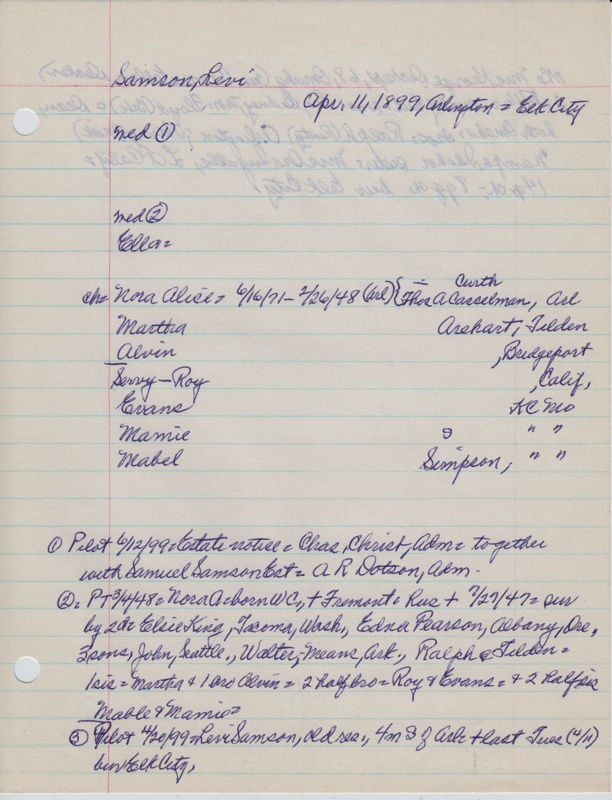 Samson, Levi
Apr. 11, 1899, Arlington = Elk City
md ①
md ②
Ella =
ch = Nora Alice = 6/16/71 - 2/26/48 (Arl) { ÷ Thos A Casselman, Arl
Curth
Martha Arehart, Tilden
Alvin , Bridgeport
Servy - Roy , Calif,
Evans KC Mo
Mamie " "
Mabel Simpson, " "
① Pilot 6/12/99 = Estate notice = Chas, Christ, Adm = together
with Samuel Samson Est = A R Dotson, Adm -
②= PT 3/4/48 = Nora A = born W C, + Fremont = Rus + 7/27/47 = sur
by 2 da = Elsie King, Tacoma, Wash, Edna Pearson, Albany, Ore,
3 sons, John, Seattle, Walter, Means, Ark, Ralph @ Tilden =
1 sis = Martha & 1 bro Alvin = 2 half bro = Roy & Evans = & 2 half sis
Mable & Mamie =
③ Pilot 4/20/99 = Levi Samson, old res, 4 m S of Arl = + last Tues (4/11)
bur Elk City,